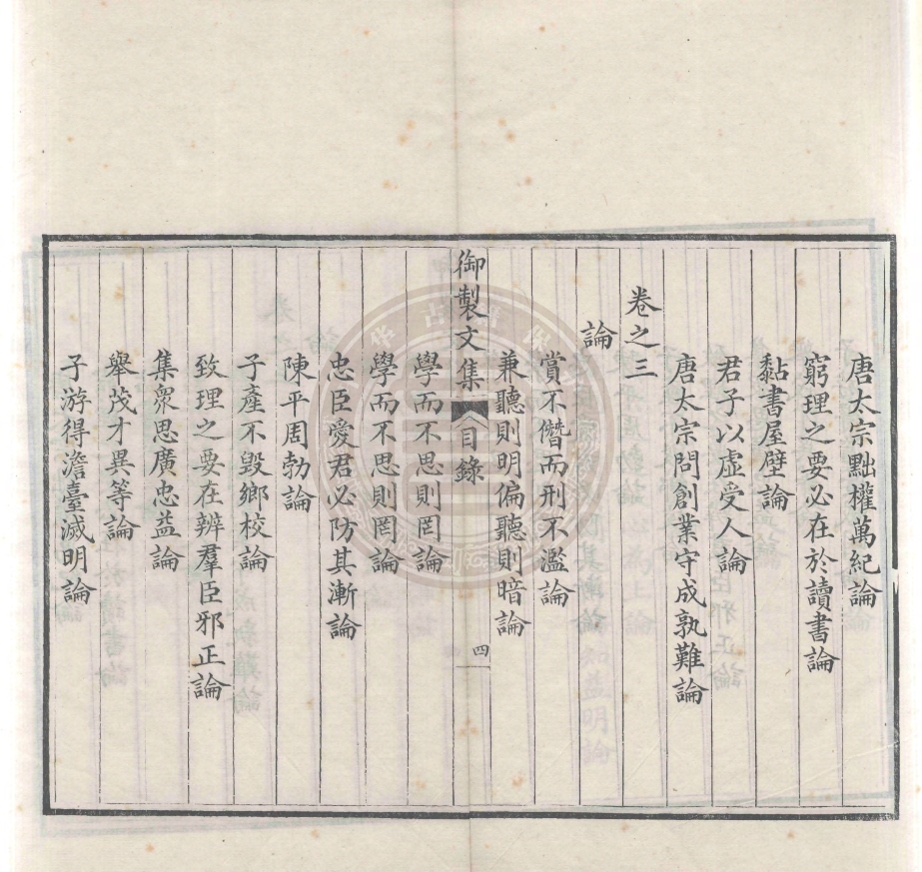 唐太宗黜權萬紀論
窮理之要必在於讀書論
黏書屋壁論
君子以虛受人論
唐太宗問創業守成孰難論
卷之三
論
賞不僭而刑不濫論
兼聽則明偏聽則暗論
御製文集 目錄 四
學而不思則罔論
學而不思則罔論
忠臣愛君必防其漸論
陳平周勃論
子產不毀鄉校論
致理之要在辨羣臣邪正論
集衆思廣忠益論
舉茂才異等論
子游得澹臺滅明論